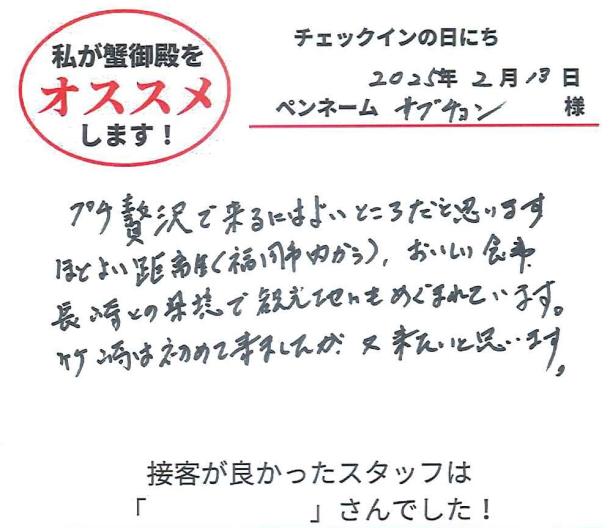 私が蟹御殿を
オススメ
します！
チェックインの日にち
2025年 2月 13日
ペンネーム オブチョン 様
プチ贅沢で来るにはよいところだと思います
ほどよい距離(福岡市内から)、おいしい食事、
長崎との県境で観光地にもめぐまれています。
竹崎は初めて来ましたが、又来たいと思います。
接客が良かったスタッフは
「　　　　　　」さんでした！